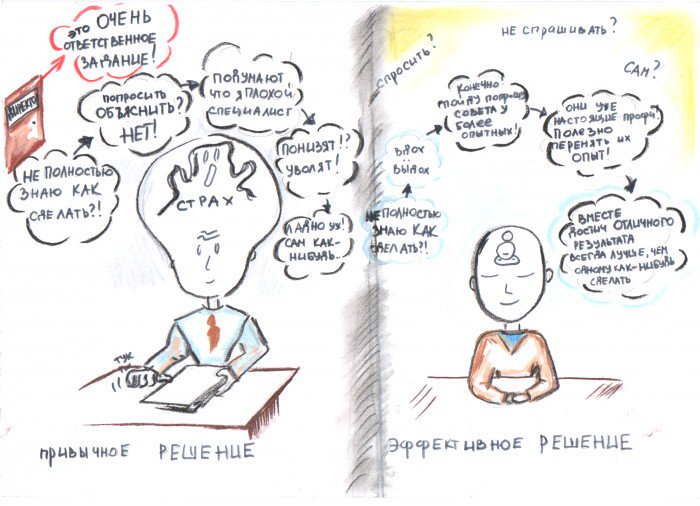 это ОЧЕНЬ
ОТВЕТСТВЕННОЕ
ЗАДАНИЕ!
ДИРЕКТОР
НЕ ПОЛНОСТЬЮ
ЗНАЮ КАК
СДЕЛАТЬ?!
ПОПРОСИТЬ
ОБЪЯСНИТЬ?
НЕТ!
ПОДУМАЮТ,
ЧТО Я ПЛОХОЙ
СПЕЦИАЛИСТ
ПОНИЗЯТ!?
УВОЛЯТ!
ЛАДНО УЖ!
САМ КАК-
НИБУДЬ.
СТРАХ
ТУК
ПРИВЫЧНОЕ РЕШЕНИЕ
СПРОСИТЬ?
НЕ СПРАШИВАТЬ?
САМ?
НЕ ПОЛНОСТЬЮ
ЗНАЮ КАК
СДЕЛАТЬ?!
ВДОХ
ВЫДОХ
КОНЕЧНО
ПОЙДУ ПОПРОШУ
СОВЕТА У
БОЛЕЕ
ОПЫТНЫХ!
ОНИ УЖЕ
НАСТОЯЩИЕ ПРОФИ.
ПОЛЕЗНО
ПЕРЕНЯТЬ ИХ
ОПЫТ!
ВМЕСТЕ
ДОСТИЧ ОТЛИЧНОГО
РЕЗУЛЬТАТА
ВСЕГДА ЛУЧШЕ, ЧЕМ
ОДНОМУ КАК-НИБУДЬ
СДЕЛАТЬ
ЭФФЕКТИВНОЕ РЕШЕНИЕ